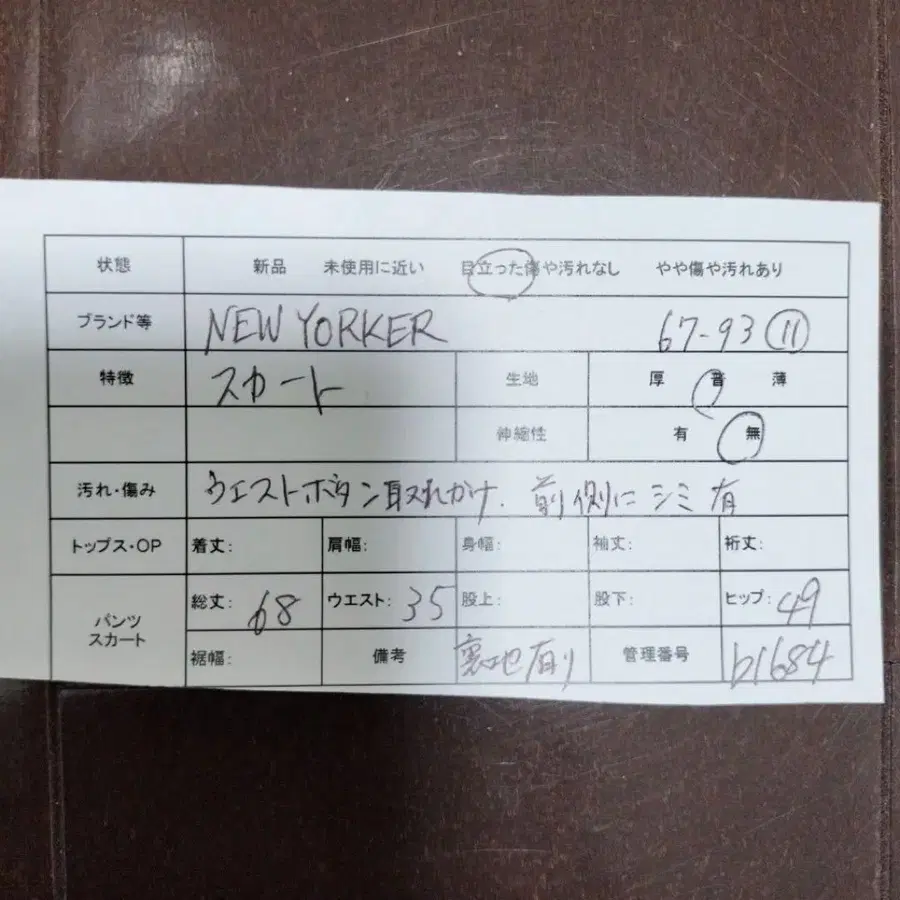 状態 新品 未使用に近い 目立った傷や汚れなし やや傷や汚れあり
ブランド等 NEW YORKER 67-93 ⑪
特徴 スカート 生地 厚 普 薄
伸縮性 有 無
汚れ・傷み ウエストボタン取れかけ、前側にシミ有
トップス・OP 着丈: 肩幅: 身幅: 袖丈: 裄丈:
パンツ スカート 総丈: 68 ウエスト: 35 股上: 股下: ヒップ: 49
裾幅: 備考 裏地有り 管理番号 b1684